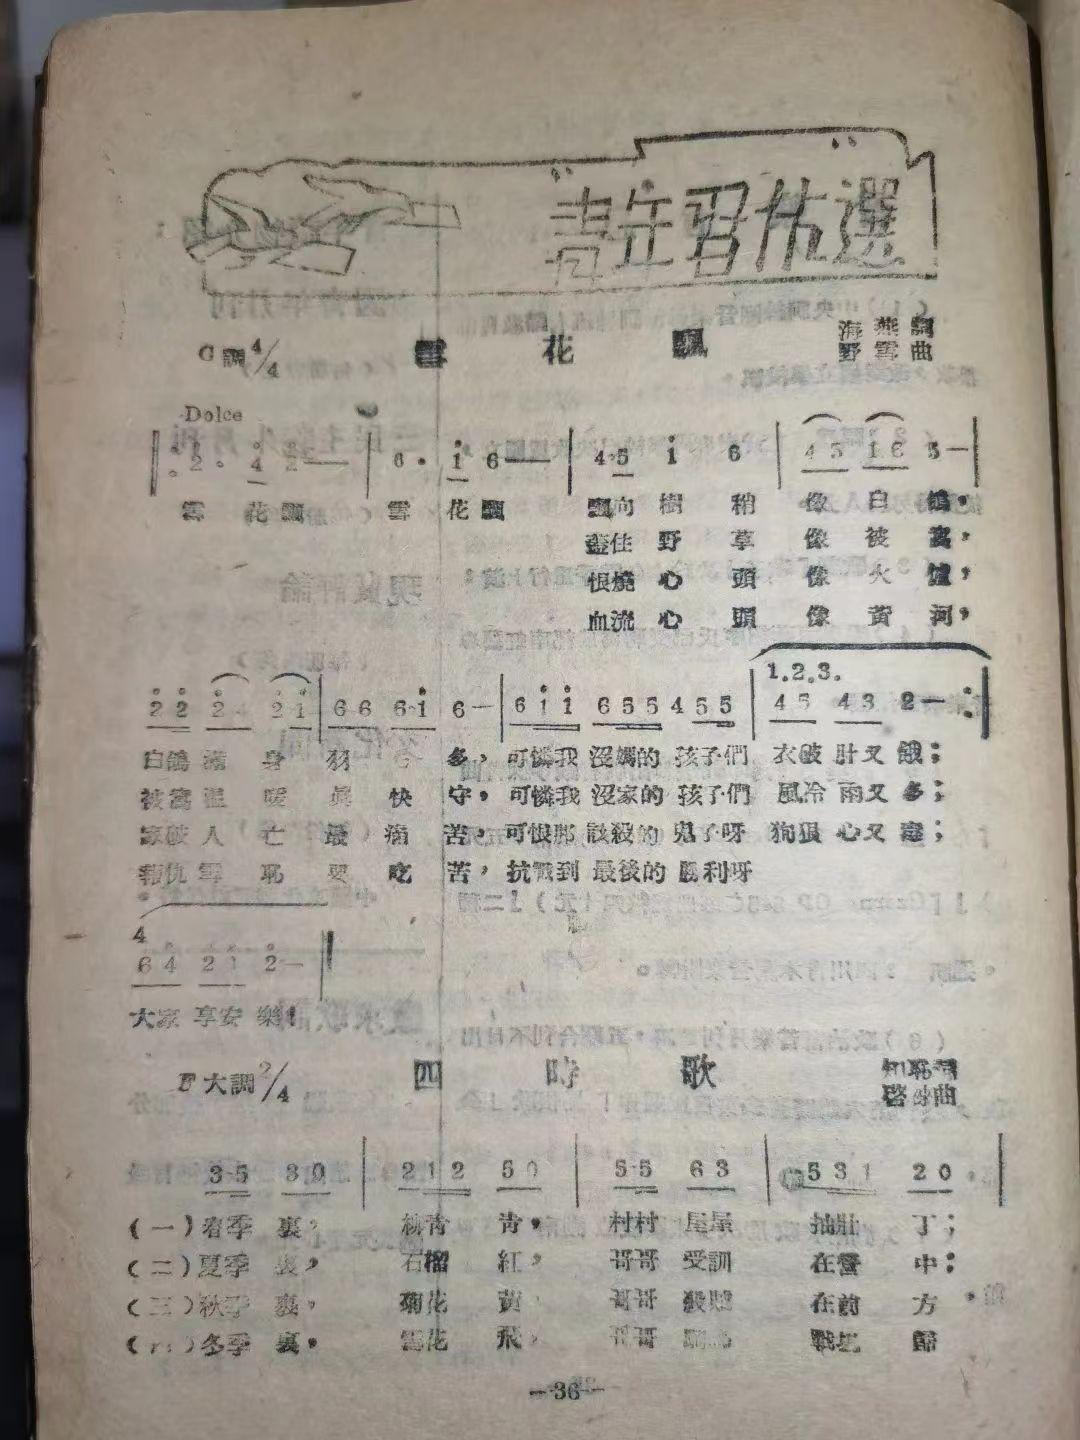 青年習作選
C調4/4 雪花飄 海燕詞
野雪曲
Dolce
2· 4 2—— 6· i 6—— 4·5 i 6 45 16 5—
雪 花飄 雪 花飄 飄向 樹 稍 像 白 鴿，
蓋住 野 草 像 被 窩，
恨燒 心 頭 像 火 爐，
血流 心 頭 像 黃 河，
1.2.3.
22 2 21 66 6·i 6— 6ii 655 455 45 43 2—
白鴿 滿 身 羽 多，可憐我 沒媽的 孩子們 衣破 肚又 餓；
被窩 溫 暖 眞 快 守，可憐我 沒家的 孩子們 風冷 雨又 多；
家破 人 亡 最 痛 苦，可恨那 該殺的 鬼子呀 狗狠 心又 毒；
報仇 雪 恥 要 吃 苦，抗戰到 最後的 勝利呀
4
64 21 2—
大家 享安 樂！
F大調2/4 四時歌 知恥詞
曲
3·5 30 212 50 5·5 63 531 20
(一)春季 裏， 柳青 青， 村村 屋屋 抽壯 丁；
(二)夏季 裏， 石榴 紅， 哥哥 受訓 在營 中；
(三)秋季 裏， 菊花 黃， 哥哥 殺賊 在前 方
冬季 裏， 雪花 飛， 哥哥 戰馬 歸
—36—